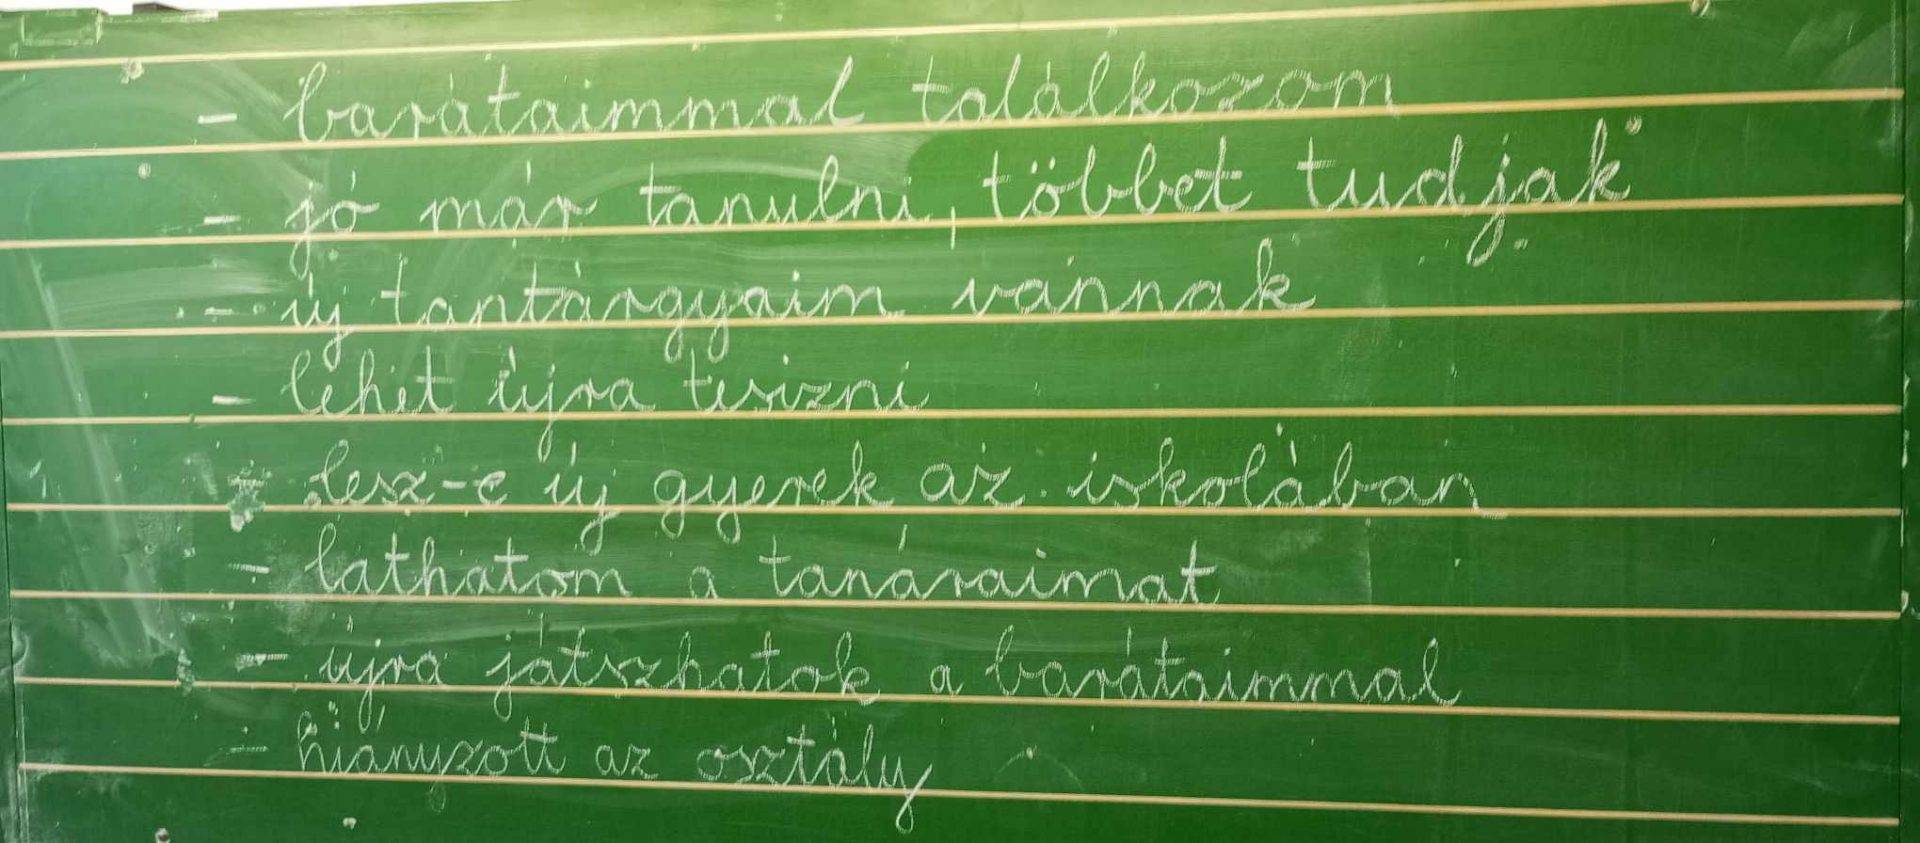 - barátaimmal találkozom
- jó már tanulni, többet tudjak
- új tantárgyaim vannak
- lehet újra tesizni
- lesz-e új gyerek az iskolában
- láthatom a tanáraimat
- újra játszhatok a barátaimmal
- hiányzott az osztály